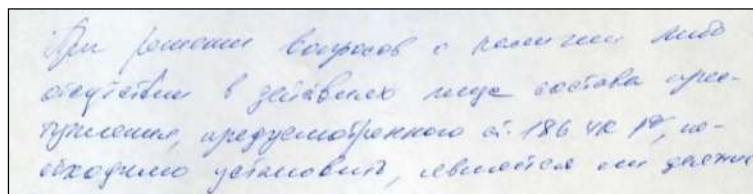 При решении вопросов о наличии либо
отсутствии в действиях лица состава прес-
тупления, предусмотренного ст. 186 УК РФ, не-
обходимо установить, являются ли денежн